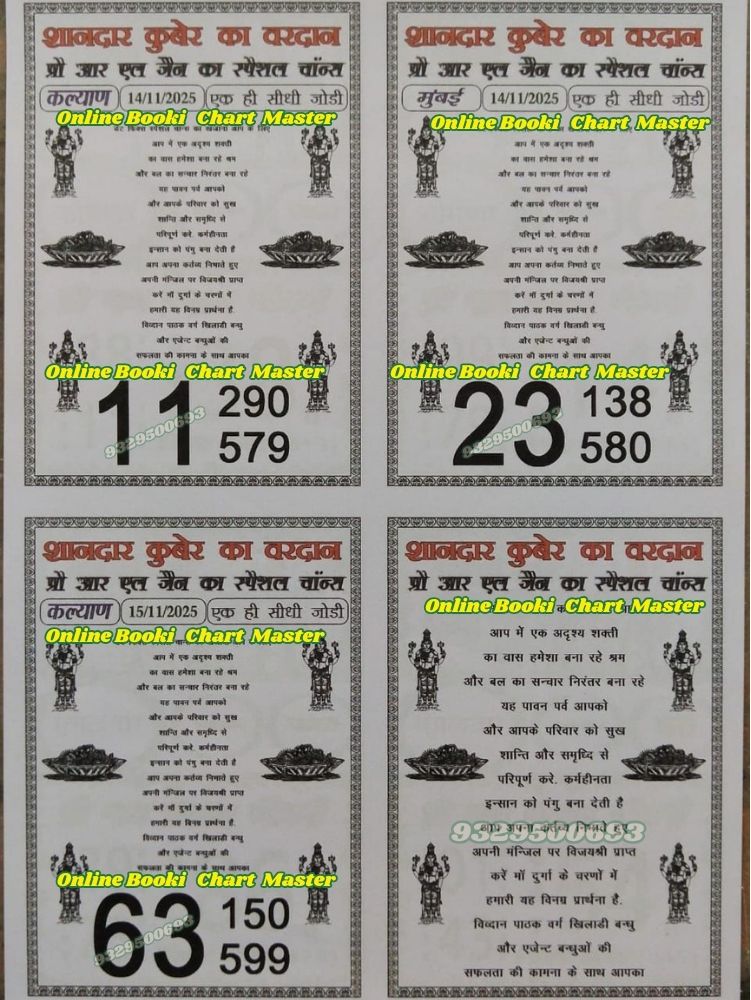 शानदार कुबेर का वरदान
प्रौ आर एल जैन का स्पैशल चॉन्स
कल्याण 14/11/2025 एक ही सीधी जोडी
Online Booki Chart Master
आप में एक अदृश्य शक्ती
का वास हमेशा बना रहे श्रम
और बल का सन्चार निरंतर बना रहे
यह पावन पर्व आपको
और आपके परिवार को सुख
शान्ति और समृध्दि से
परिपूर्ण करे. कर्महीनता
इन्सान को पंगु बना देती है
आप अपना कर्तव्य निभाते हुए
अपनी मंन्जिल पर विजयश्री प्राप्त
करें माँ दुर्गा के चरणों में
हमारी यह विनम्र प्रार्थना है.
विव्दान पाठक वर्ग खिलाडी बन्धु
और एजेन्ट बन्धुओं की
सफलता की कामना के साथ आपका
Online Booki Chart Master
11 290
579
9329500693
शानदार कुबेर का वरदान
प्रौ आर एल जैन का स्पैशल चॉन्स
मुंबई 14/11/2025 एक ही सीधी जोडी
Online Booki Chart Master
आप में एक अदृश्य शक्ती
का वास हमेशा बना रहे श्रम
और बल का सन्चार निरंतर बना रहे
यह पावन पर्व आपको
और आपके परिवार को सुख
शान्ति और समृध्दि से
परिपूर्ण करे. कर्महीनता
इन्सान को पंगु बना देती है
आप अपना कर्तव्य निभाते हुए
अपनी मंन्जिल पर विजयश्री प्राप्त
करें माँ दुर्गा के चरणों में
हमारी यह विनम्र प्रार्थना है.
विव्दान पाठक वर्ग खिलाडी बन्धु
और एजेन्ट बन्धुओं की
सफलता की कामना के साथ आपका
Online Booki Chart Master
23 138
580
9329500693
शानदार कुबेर का वरदान
प्रौ आर एल जैन का स्पैशल चॉन्स
कल्याण 15/11/2025 एक ही सीधी जोडी
Online Booki Chart Master
आप में एक अदृश्य शक्ती
का वास हमेशा बना रहे श्रम
और बल का सन्चार निरंतर बना रहे
यह पावन पर्व आपको
और आपके परिवार को सुख
शान्ति और समृध्दि से
परिपूर्ण करे. कर्महीनता
इन्सान को पंगु बना देती है
आप अपना कर्तव्य निभाते हुए
अपनी मंन्जिल पर विजयश्री प्राप्त
करें माँ दुर्गा के चरणों में
हमारी यह विनम्र प्रार्थना है.
विव्दान पाठक वर्ग खिलाडी बन्धु
और एजेन्ट बन्धुओं की
सफलता की कामना के साथ आपका
Online Booki Chart Master
63 150
599
9329500693
शानदार कुबेर का वरदान
प्रौ आर एल जैन का स्पैशल चॉन्स
Online Booki Chart Master
आप में एक अदृश्य शक्ती
का वास हमेशा बना रहे श्रम
और बल का सन्चार निरंतर बना रहे
यह पावन पर्व आपको
और आपके परिवार को सुख
शान्ति और समृध्दि से
परिपूर्ण करे. कर्महीनता
इन्सान को पंगु बना देती है
आप अपना कर्तव्य निभाते हुए
9329500693
अपनी मंन्जिल पर विजयश्री प्राप्त
करें माँ दुर्गा के चरणों में
हमारी यह विनम्र प्रार्थना है.
विव्दान पाठक वर्ग खिलाडी बन्धु
और एजेन्ट बन्धुओं की
सफलता की कामना के साथ आपका